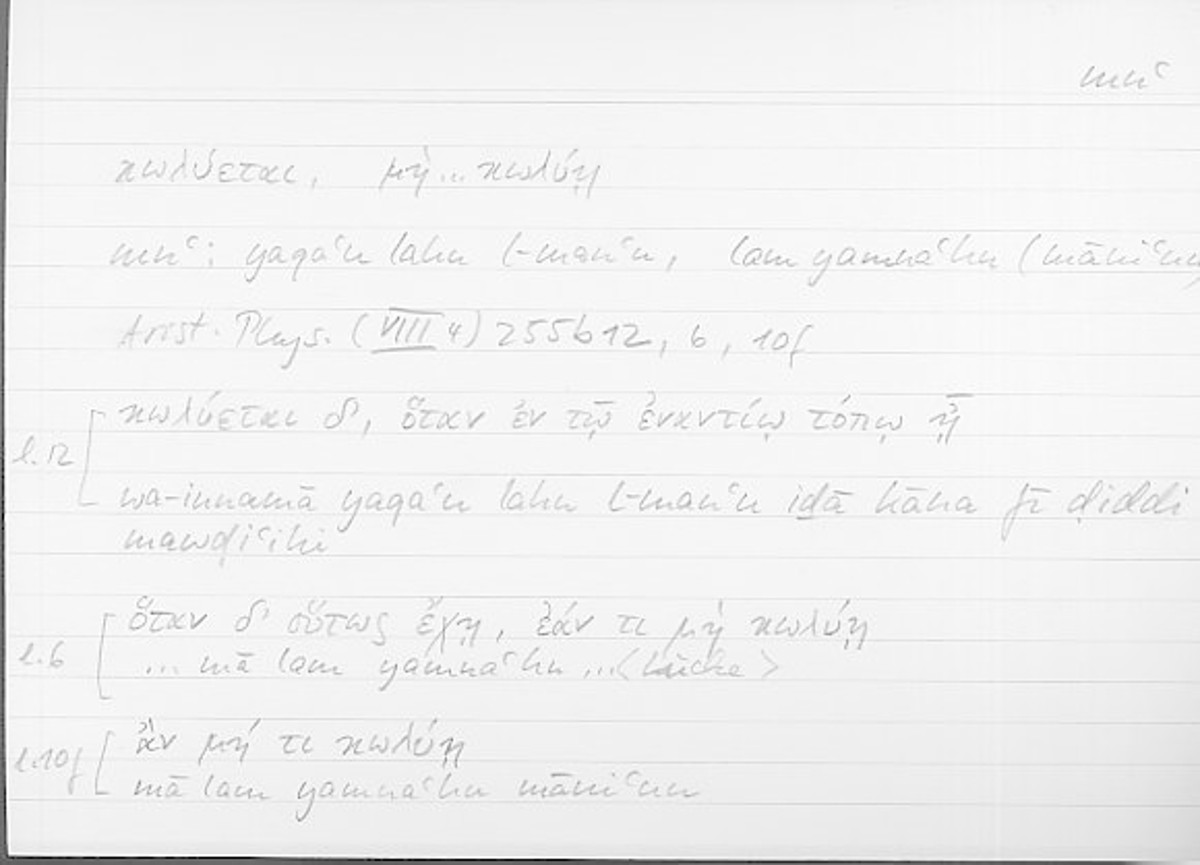 mnʿ
κωλύεται, μὴ... κωλύῃ
mnʿ: yaqaʿu lahu l-manʿu, lam yamnaʿhu (māniʿun)
Arist. Phys. (VIII 4) 255b12, 6, 10f
κωλύεται δ', ὅταν ἐν τῷ ἐναντίῳ τόπῳ ᾖ
l.12
wa-innamā yaqaʿu lahu l-manʿu iḏā kāna fī ḍiddi
mawḍiʿihi
ὅταν δ' οὕτως ἔχῃ, ἐάν τι μὴ κωλύῃ
l.6
... mā lam yamnaʿhu ...<Lücke>
ἂν μή τι κωλύῃ
l.10f
mā lam yamnaʿhu māniʿun